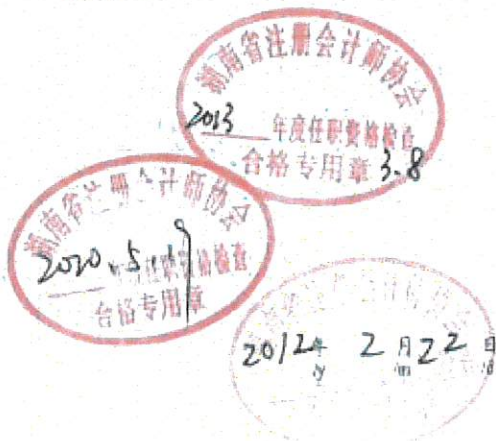 湖南省注册会计师协会
2013 年度任职资格检查
合格专用章 3.8
湖南省注册会计师协会
2020.5.19 任职资格检查
合格专用章
2012年 2月22日
y m d